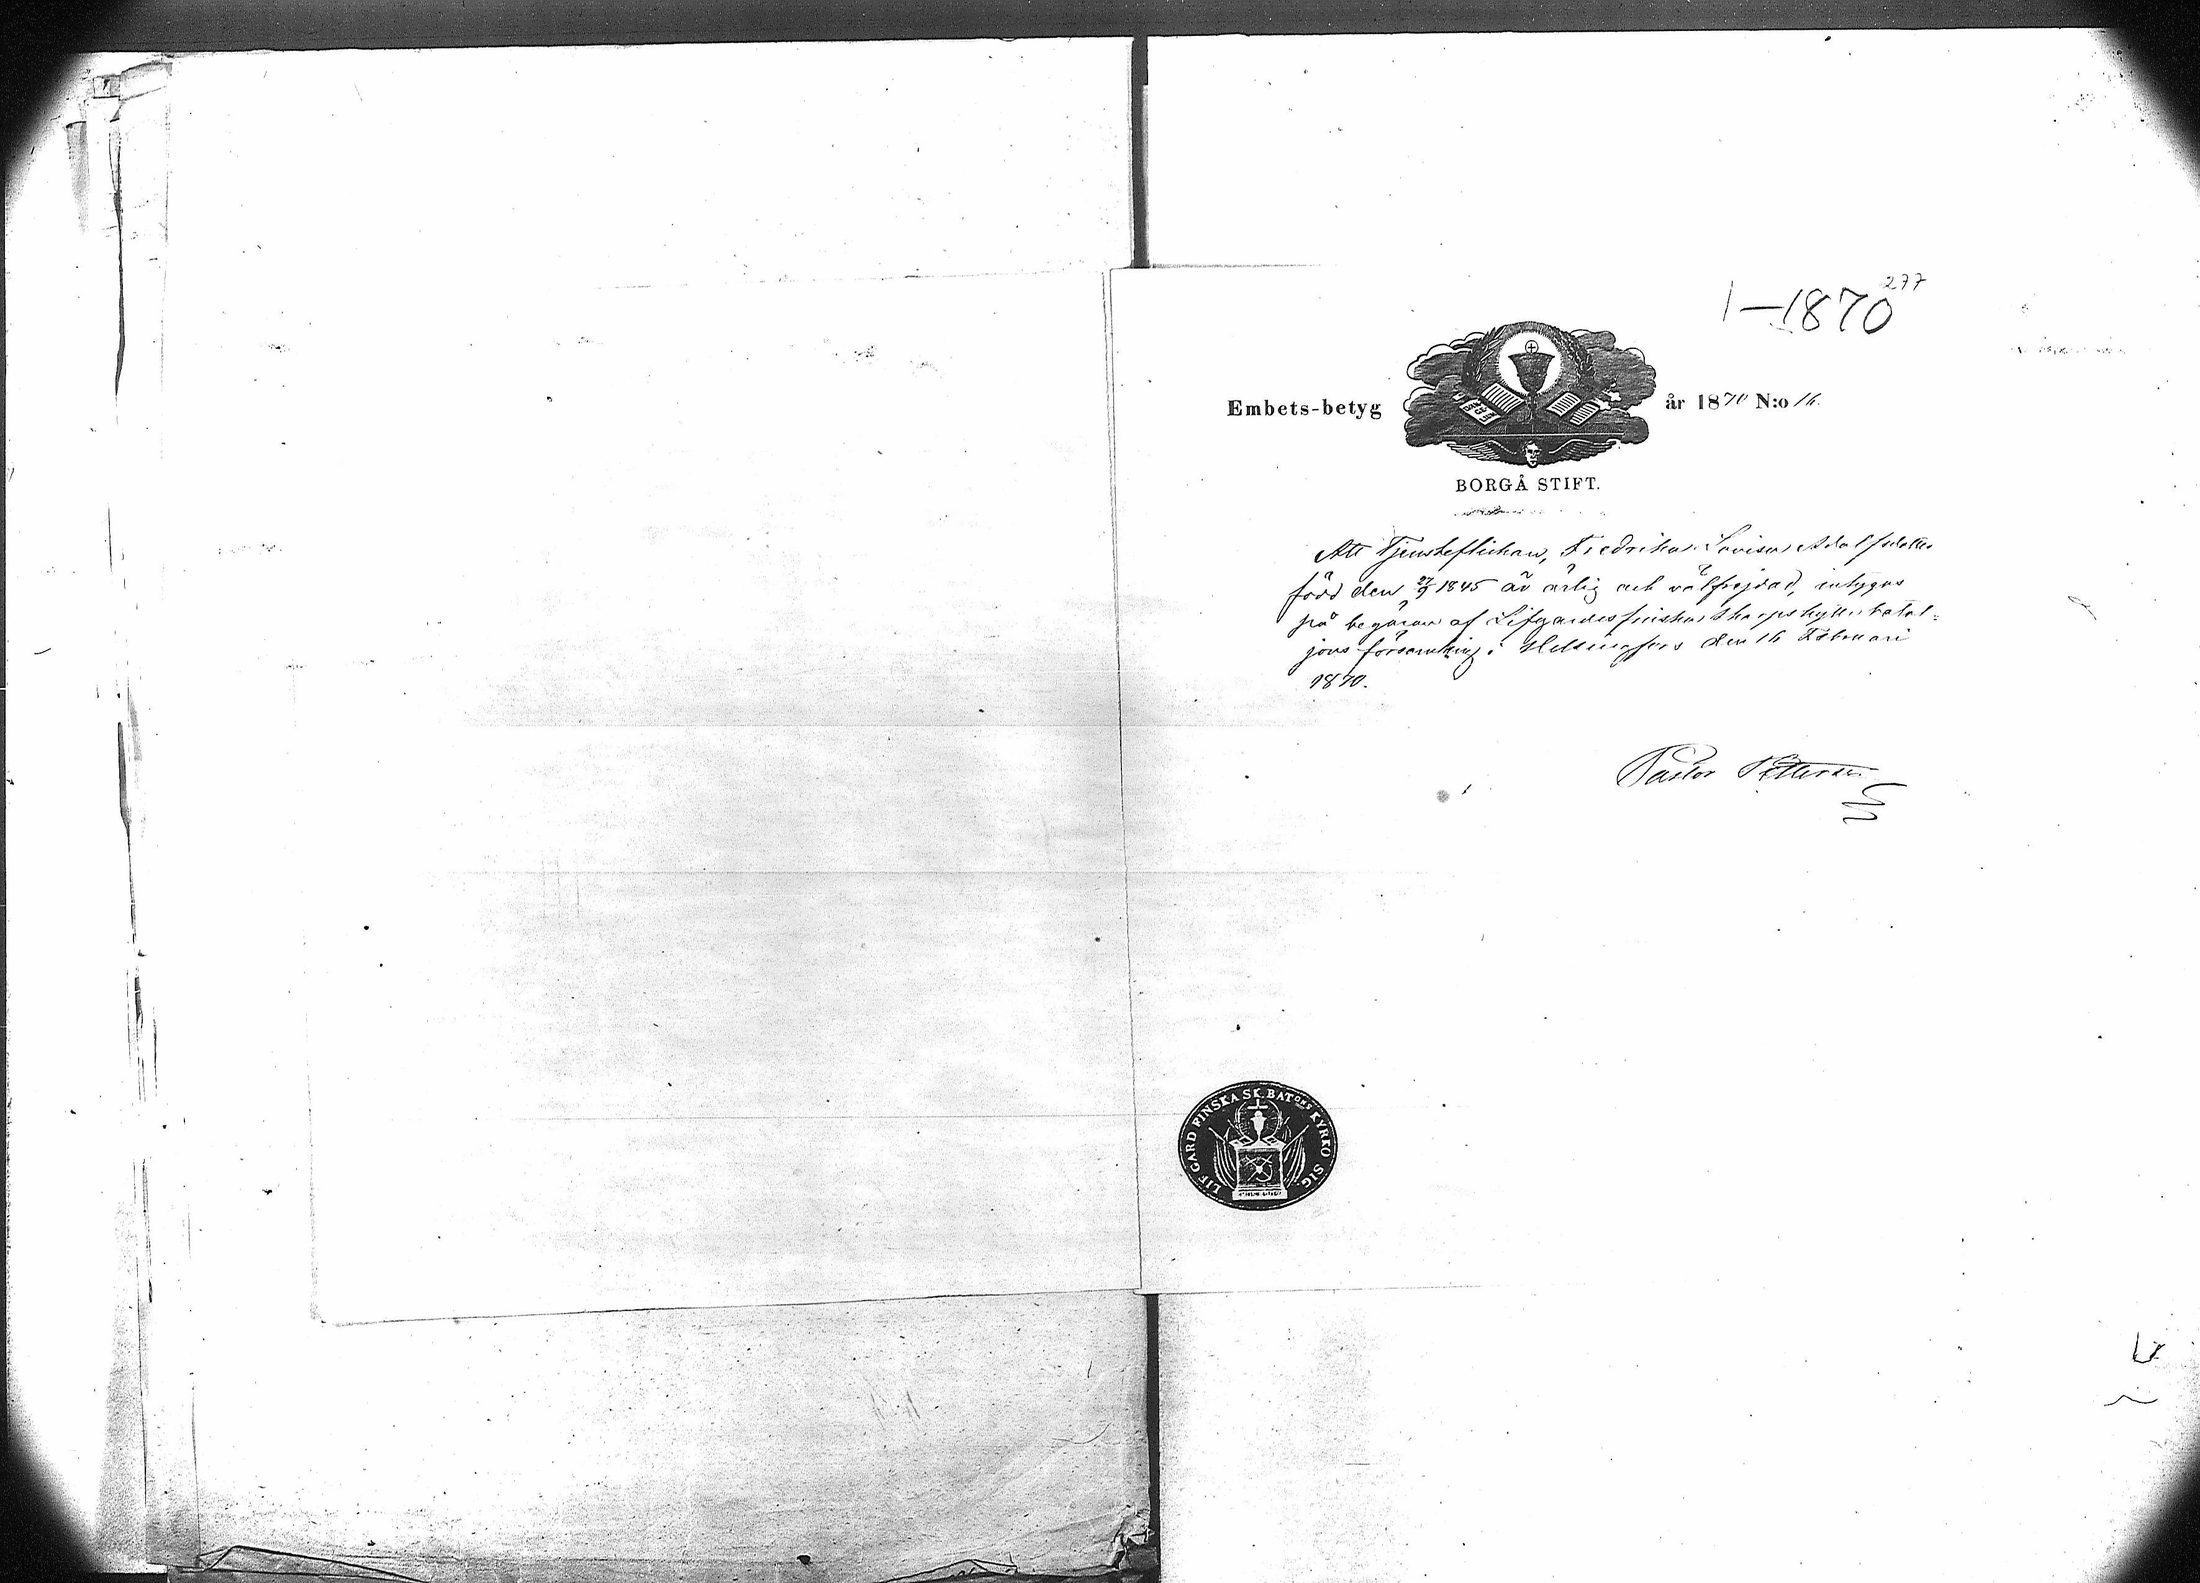 277
1–1870
Embets-betyg år 1870 N:o 16.
BORGÅ STIFT.
Att Tjensteflickan, Fredrika Lovisa Adolfsdotter
född den 27/9 1845 är ärlig och välfrejdad, intygas
på begäran af Lifgardes finska skarpskytte batal-
jons församling i Helsingfors den 16 Februari
1870.
Pastor
LIF GARD FINSKA SK. BATons KYRKO SIG.